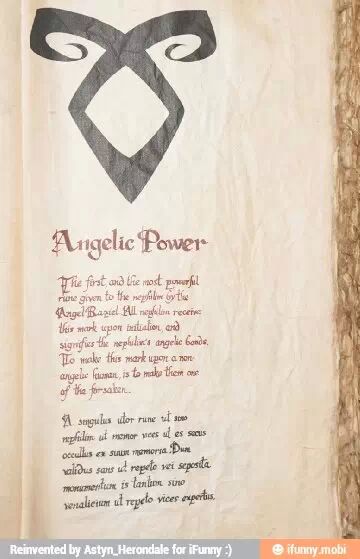 Angelic Power
The first and the most powerful
rune given to the nephilim by the
Angel Raziel. All nephilim receive
this mark upon initiation, and
signifies the nephilim's angelic bonds.
To make this mark upon a non-
angelic human, is to make them one
of the forsaken.
A singulus utor rune ut sino
nephilim ut memor vices ut es secus
occultus ex suum memoria. Dum
validus sans ut repeto vei seposita
monumentum is tantum sino
venalicium ut repeto vices expertus.
Reinvented by Astyn_Herondale for iFunny :)
ifunny.mobi